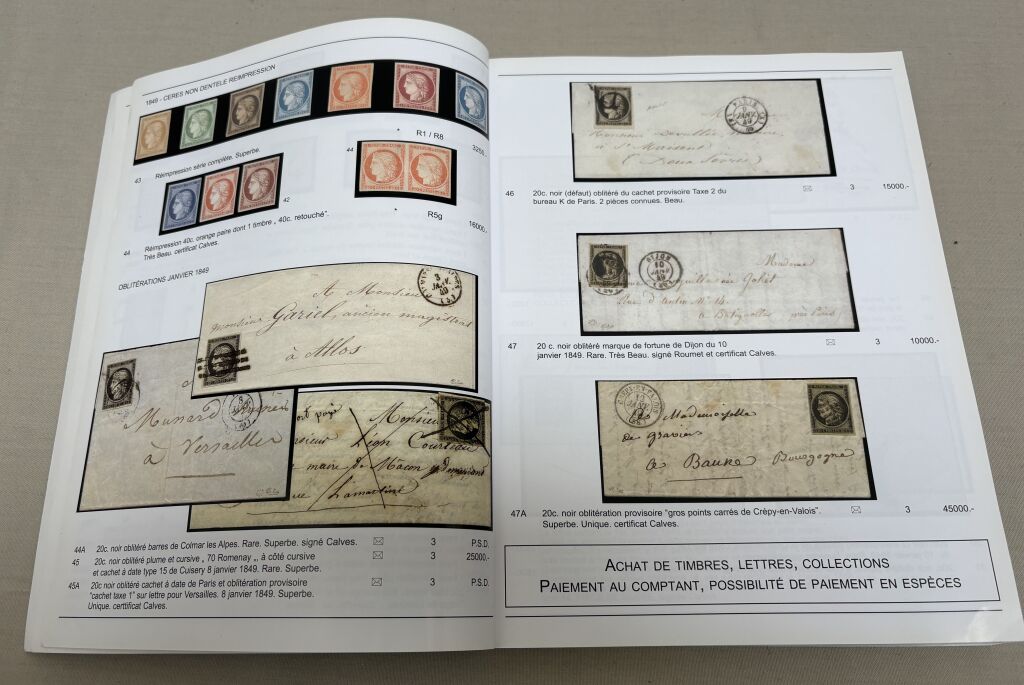 1849 - CERES NON DENTELE REIMPRESSION
R1 / R8
43 Réimpression série complète. Superbe. 3250.-
44
42
R5g
44 Réimpression 40c. orange paire dont 1 timbre „ 40c. retouché". 16000.-
Très Beau. certificat Calves.
OBLITÉRATIONS JANVIER 1849
A Monsieur
Monsieur Gariel, ancien magistrat
à Allos
3
JANV.
49
à Versailles
port payé Monsieur
Léon
maire de Macon
Lamartine
44A 20c. noir oblitéré barres de Colmar les Alpes. Rare. Superbe. signé Calves. 3 P.S.D.
45 20c. noir oblitéré plume et cursive „ 70 Romenay „, à côté cursive 3 25000.-
et cachet à date type 15 de Cuisery 8 janvier 1849. Rare. Superbe.
45A 20c noir oblitéré cachet à date de Paris et oblitération provisoire 3 P.S.D.
"cachet taxe 1" sur lettre pour Versailles. 8 janvier 1849. Superbe.
Unique. certificat Calves.
PARIS
JANV
49
à St Maixent
46 20c. noir (défaut) oblitéré du cachet provisoire Taxe 2 du 3 15000.-
bureau K de Paris. 2 pièces connues. Beau.
DIJON
10
JANV
49
Madame
à Batignolles près Paris
47 20 c. noir oblitéré marque de fortune de Dijon du 10 3 10000.-
janvier 1849. Rare. Très Beau. signé Roumet et certificat Calves.
12
JANV
Mademoiselle
de
Bourgogne
47A 20c. noir oblitération provisoire "gros points carrés de Crèpy-en-Valois". 3 45000.-
Superbe. Unique. certificat Calves.
ACHAT DE TIMBRES, LETTRES, COLLECTIONS
PAIEMENT AU COMPTANT, POSSIBILITÉ DE PAIEMENT EN ESPÈCES